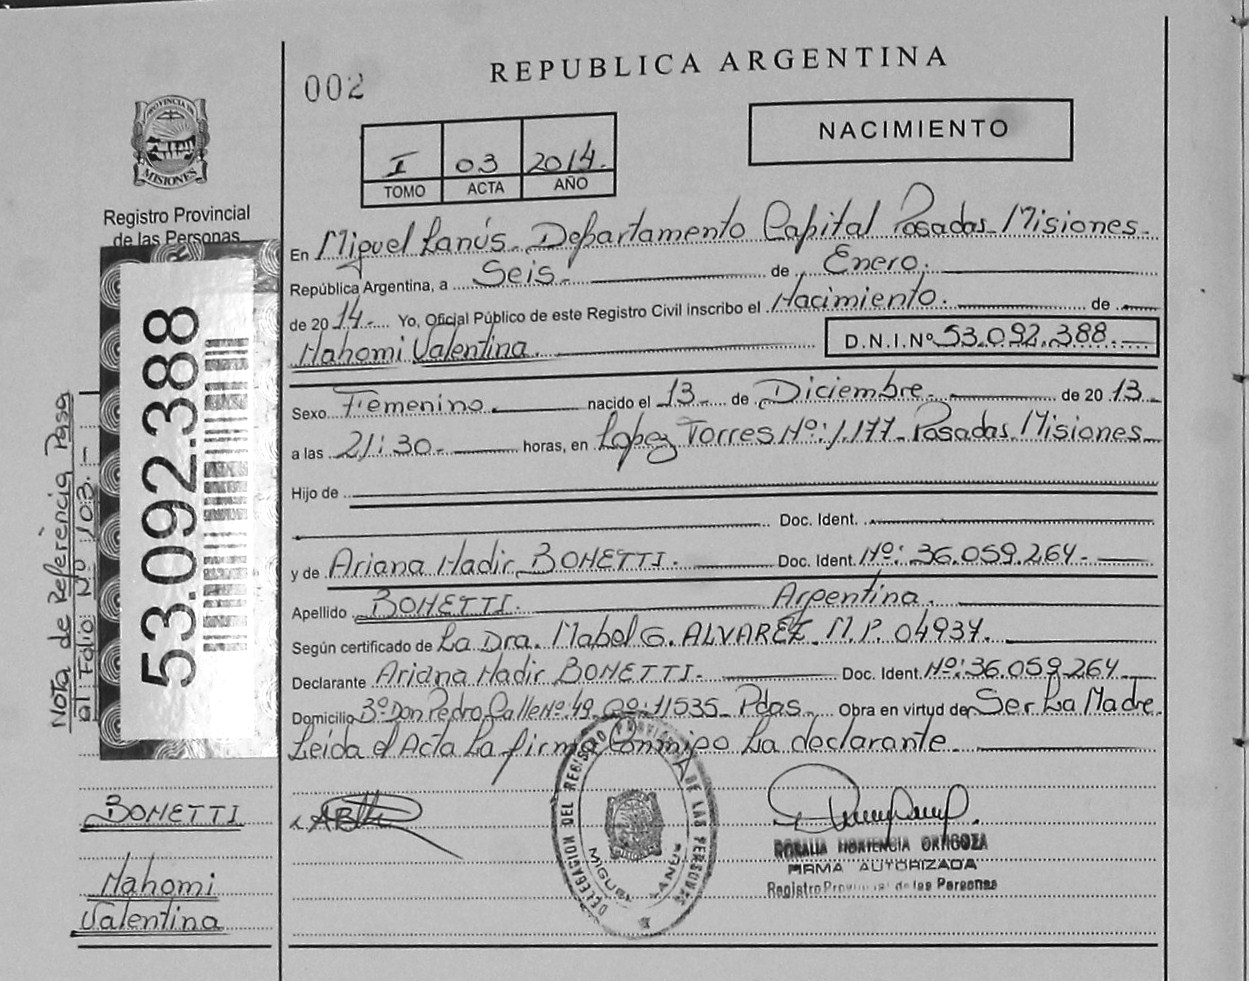 002
REPUBLICA ARGENTINA
NACIMIENTO
I 03 2014.
TOMO ACTA AÑO
PROVINCIA DE
MISIONES
Registro Provincial
de las Personas
53.092.388
Nota de Referencia Pasa
al Folio: Nº 103.-
En Miguel Lanús. Departamento Capital Posadas-Misiones-
República Argentina, a Seis. de Enero.
de 2014.- Yo, Oficial Público de este Registro Civil inscribo el Nacimiento. de
Nahomi Valentina. D.N.I.Nº 53.092.388.
Sexo Femenino. nacido el 13 de Diciembre. de 2013.
a las 21:30. horas, en Lopez Torres Nº: 1.177-Posadas.Misiones
Hijo de
Doc. Ident.
y de Ariana Nadir BONETTI. Doc. Ident. Nº: 36.059.264.
Apellido BONETTI. Argentina.
Según certificado de La Dra. Mabel G. ALVAREZ M.P. 04934.
Declarante Ariana Nadir BONETTI. Doc. Ident. Nº: 36.059.264
Domicilio Bº Don Pedro Calle Nº 49, Cº: 11535 Pdas. Obra en virtud de Ser La Madre
Leída el Acta La firma Conmigo La declarante
BONETTI
Nahomi
Valentina
DELEGACION DEL REGISTRO PROVINCIAL DE LAS PERSONAS
MIGUEL LANUS
ROSALIA HORTENCIA ORTIGOZA
FIRMA AUTORIZADA
Registro Provincial de las Personas